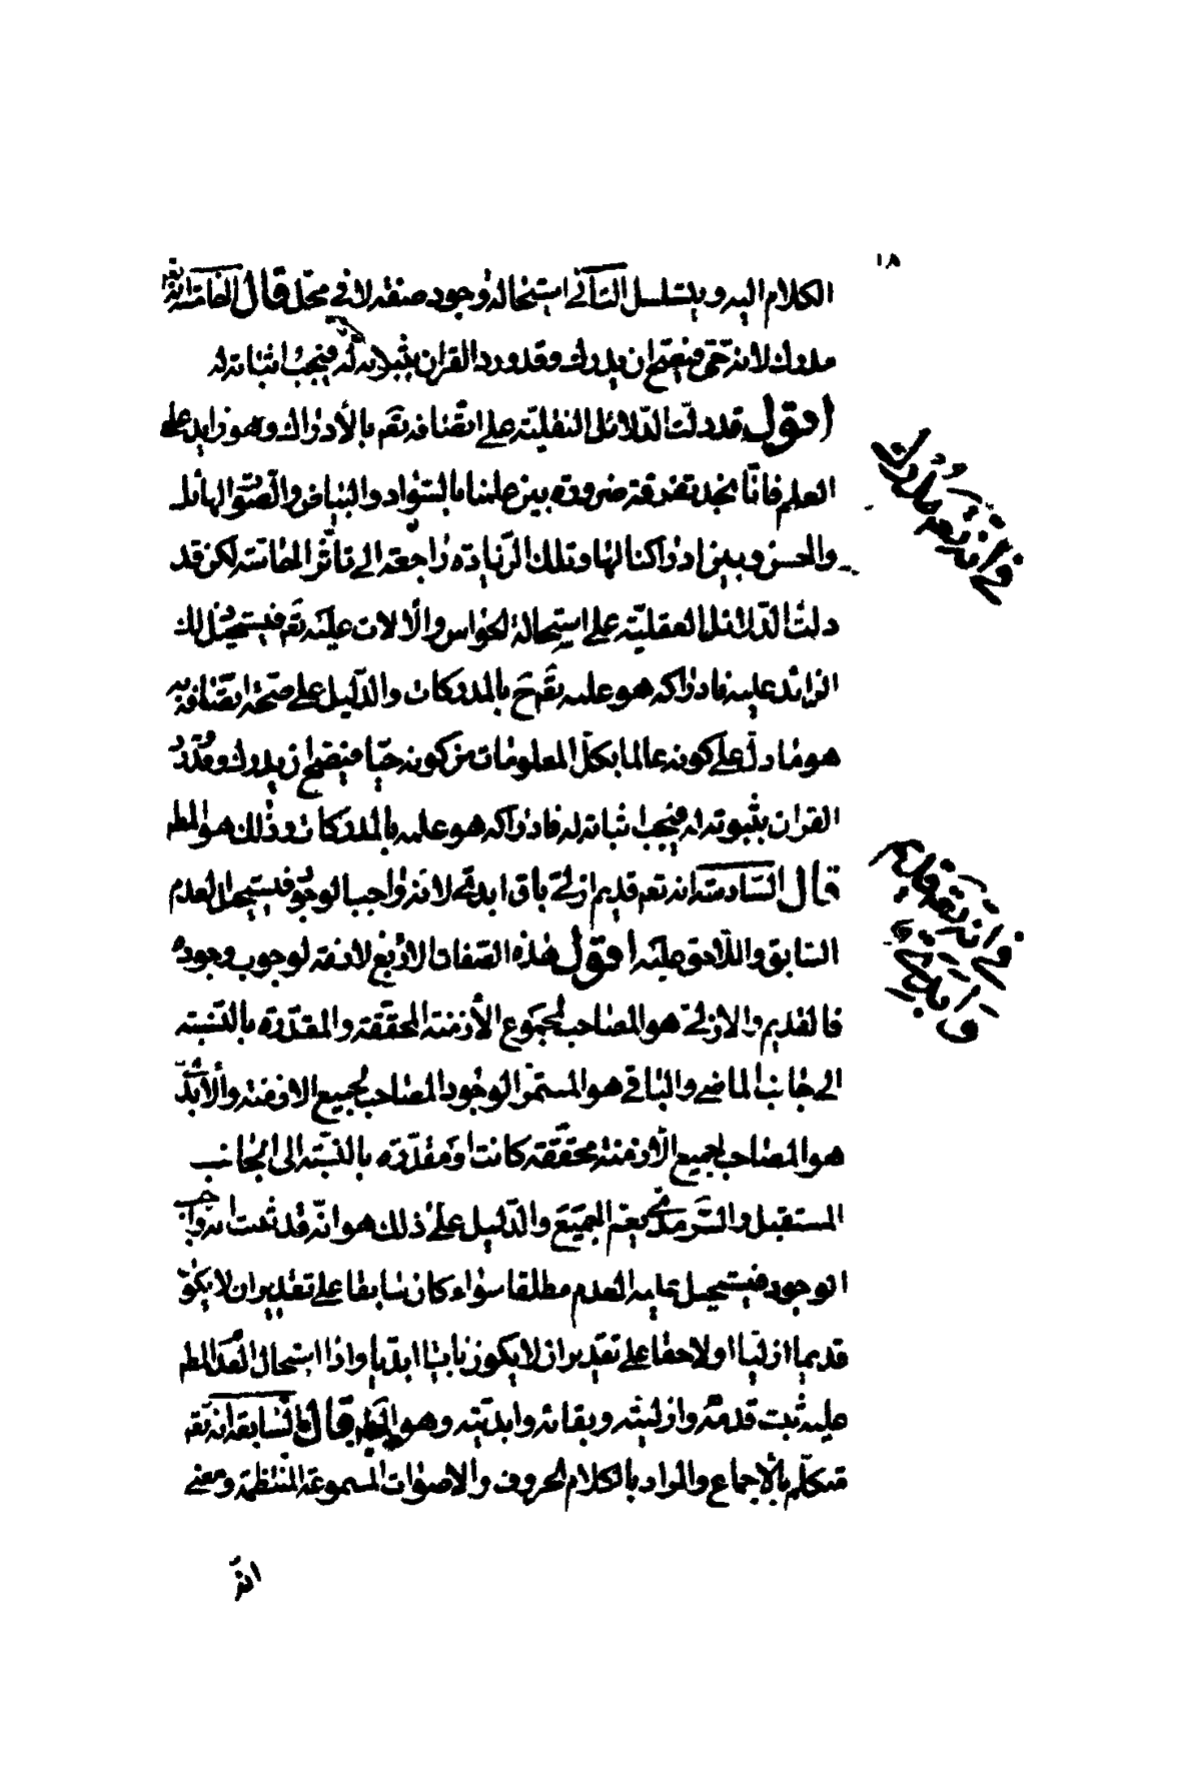 ١٨
الكلام اليه ويتسلسل الثاني استحالة وجود صفة لا في محل قال الخامسة انه تعه
مدرك لانه حي فيصح ان يدرك وقد ورد القران بثبوته له فيجب اثباته له
اقول قد دلت الدلائل النقلية على اتصافه تقم بالأدراك وهو زايد على
العلم فانّا نجد تفرقة ضرورة بين علمنا بالسواد والبياض والصوت الهائل
والحسن وبين ادراكنا لها وتلك الزيادة راجعة الى تاثر الحاسة لكن قد
دلت الدلائل العقلية على استحالة الحواس والالات عليه تقم فيستحيل ذلك
الزائد عليه فادراكه هو علمه تقم ح بالمدركات والدليل على صحة اتصافه به
هو ما دلّ على كونه عالما بكل المعلومات من كونه حيّا فيصح ان يدرك وقد ورد
القران بثبوته له فيجب اثباته له فادراكه هو علمه بالمدركات وذلك هو المط
قال السادسة انه تعه قديم ازلي باق ابدي لانه واجب الوجود فيستحيل العدم
السابق واللاحق عليه اقول هذه الصفات الاربع لازمة لوجوب وجوده
فالقديم والازلي هو المصاحب لمجموع الأزمنة المحققة والمقدّرة بالنسبة
الى جانب الماضي والباقي هو المستمر الوجود المصاحب لجميع الازمنة والأبدي
هو المصاحب لجميع الأزمنة محققة كانت او مقدّرة بالنسبة الى الجانب
المستقبل والسّرمدي يعم الجميع والدّليل على ذلك هو انّه قد ثبت انه واجب
الوجود فيستحيل عليه العدم مطلقا سواء كان سابقا على تقدير ان لا يكون
قديما ازليّا او لاحقا على تقدير ان لا يكون باقيا ابديّا واذا استحال العدم المط
عليه ثبت قدمه وازليته وبقائه وابديته وهو المط قال السابعة انه تعه
متكلّم بالاجماع والمراد بالكلام الحروف والاصوات المسموعة المنتظمة ومعنى
انّه
في انه تعه مدرك
في انه تعه قديم
وابدي